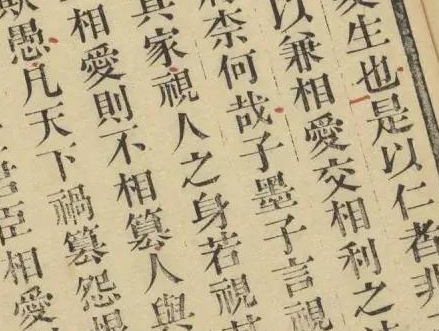 生也是以仁者非
以兼相愛交相利之
柰何哉子墨子言視
其家視人之身若視
相愛則不相篡人與
愚凡天下禍篡怨
臣相愛